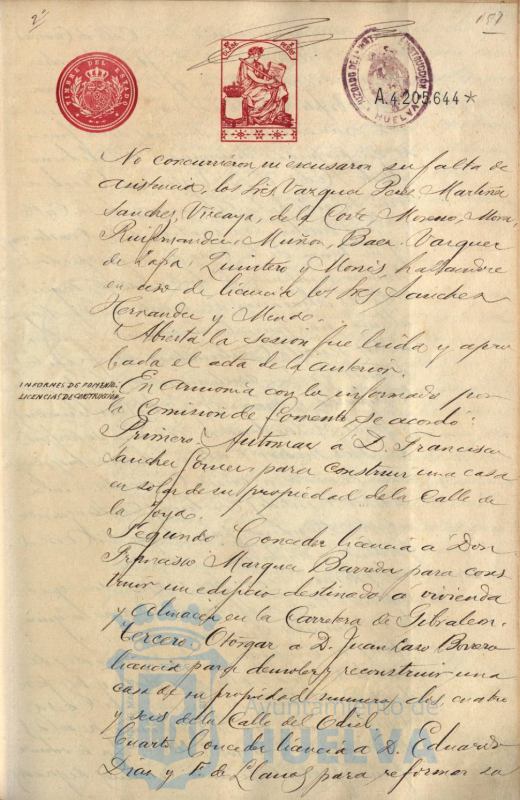 2ª
157
TIMBRE DEL ESTADO
JUZGADO DE INSTRUCCIÓN
HUELVA
A.4.205.644*
No concurrieron ni excusaron su falta de
asistencia, los Sres. Vazquez Perez, Martinez
Sanchez, Vizcaya, de la Corte, Moreno, Mora,
Ruifernandez, Muñoz, Baez, Vazquez
de Zafra, Quintero y Monis, hallandose
en uso de licencia los Sres Sanchez
Hernandez y Mendo.
Abierta la sesion fue leida y apro
bada el acta de la anterior.
INFORMES DE FOMENTO.
LICENCIAS DE CONSTRUCCION
En armonia con lo informado por
la Comision de Fomento, se acordó:
Primero. Autorizar a D. Francisco
Sanchez Gomez para construir una casa
en solar de su propiedad de la Calle de
la Joya.
Segundo. Conceder licencia a Don
Francisco Marquez Barreda para cons
truir un edificio destinado a vivienda
y almacen en la Carretera de Gibraleon.
Tercero. Otorgar a D. Juan Caro Bovero
licencia para demoler y reconstruir una
casa de su propiedad numeros dos cuatro
y seis de la Calle del Odiel
Cuarto. Conceder licencia a D. Eduardo
Dias y F. de Llanos para reformar su
Ayuntamiento de
HUELVA